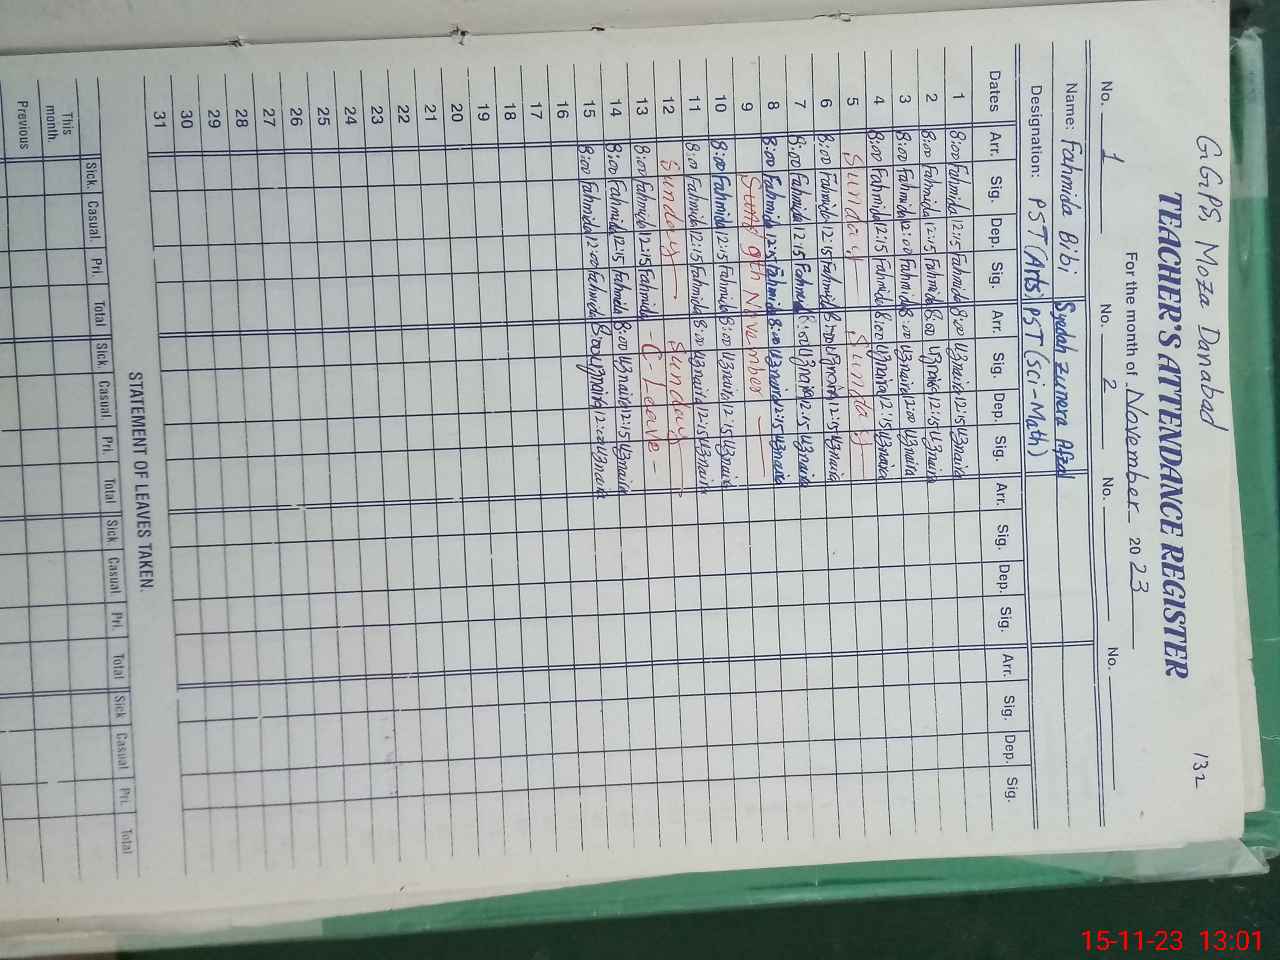 GGPS Moza Danabad 132
TEACHER'S ATTENDANCE REGISTER
For the month of November 2023
No. 1 No. 2 No. No.
Name: Fahmida Bibi Syedah Zunera Afzal
Designation: PST (Arts) PST (Sci-Math)
Dates Arr. Sig. Dep. Sig. Arr. Sig. Dep. Sig. Arr. Sig. Dep. Sig. Arr. Sig. Dep. Sig.
1 8:00 Fahmida 12:15 Fahmida 8:00 12:15
2 8:00 Fahmida 12:15 Fahmida 8:00 12:15
3 8:00 Fahmida 12:00 Fahmida 8:00 12:00
4 8:00 Fahmida 12:15 Fahmida 8:00 12:15
5 Sunday Sunday
6 8:00 Fahmida 12:15 Fahmida 8:00 12:15
7 8:00 Fahmida 12:15 Fahmida 8:00 12:15
8 8:00 Fahmida 12:15 Fahmida 8:00 12:15
9 9th November
10 8:00 Fahmida 12:15 Fahmida 8:00 12:15
11 8:00 Fahmida 12:15 Fahmida 8:00 12:15
12 Sunday Sunday
13 8:00 Fahmida 12:15 Fahmida - C-Leave -
14 8:00 Fahmida 12:15 Fahmida 8:00 12:15
15 8:00 Fahmida 12:00 Fahmida 8:00 12:00
16
17
18
19
20
21
22
23
24
25
26
27
28
29
30
31
STATEMENT OF LEAVES TAKEN.
Sick. Casual. Pri. Total Sick. Casual. Pri. Total Sick. Casual. Pri. Total Sick Casual. Pri. Total
This month.
Previous
15-11-23 13:01